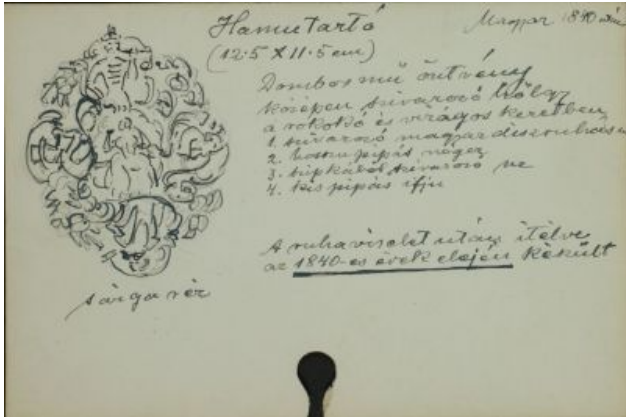 Hamutartó
Magyar 1840 után
(12·5 X 11·5 cm)
Dombormű öntvény
közepén szivarozó hölgy
a rokokó és virágos keretben
1. szivarozó magyar díszruhás
2. hosszúpipás néger
3. szivarozó nő
4. kis pipás ifjú
A ruhaviselet után itélve
az 1840-es évek elején készült
sárga réz